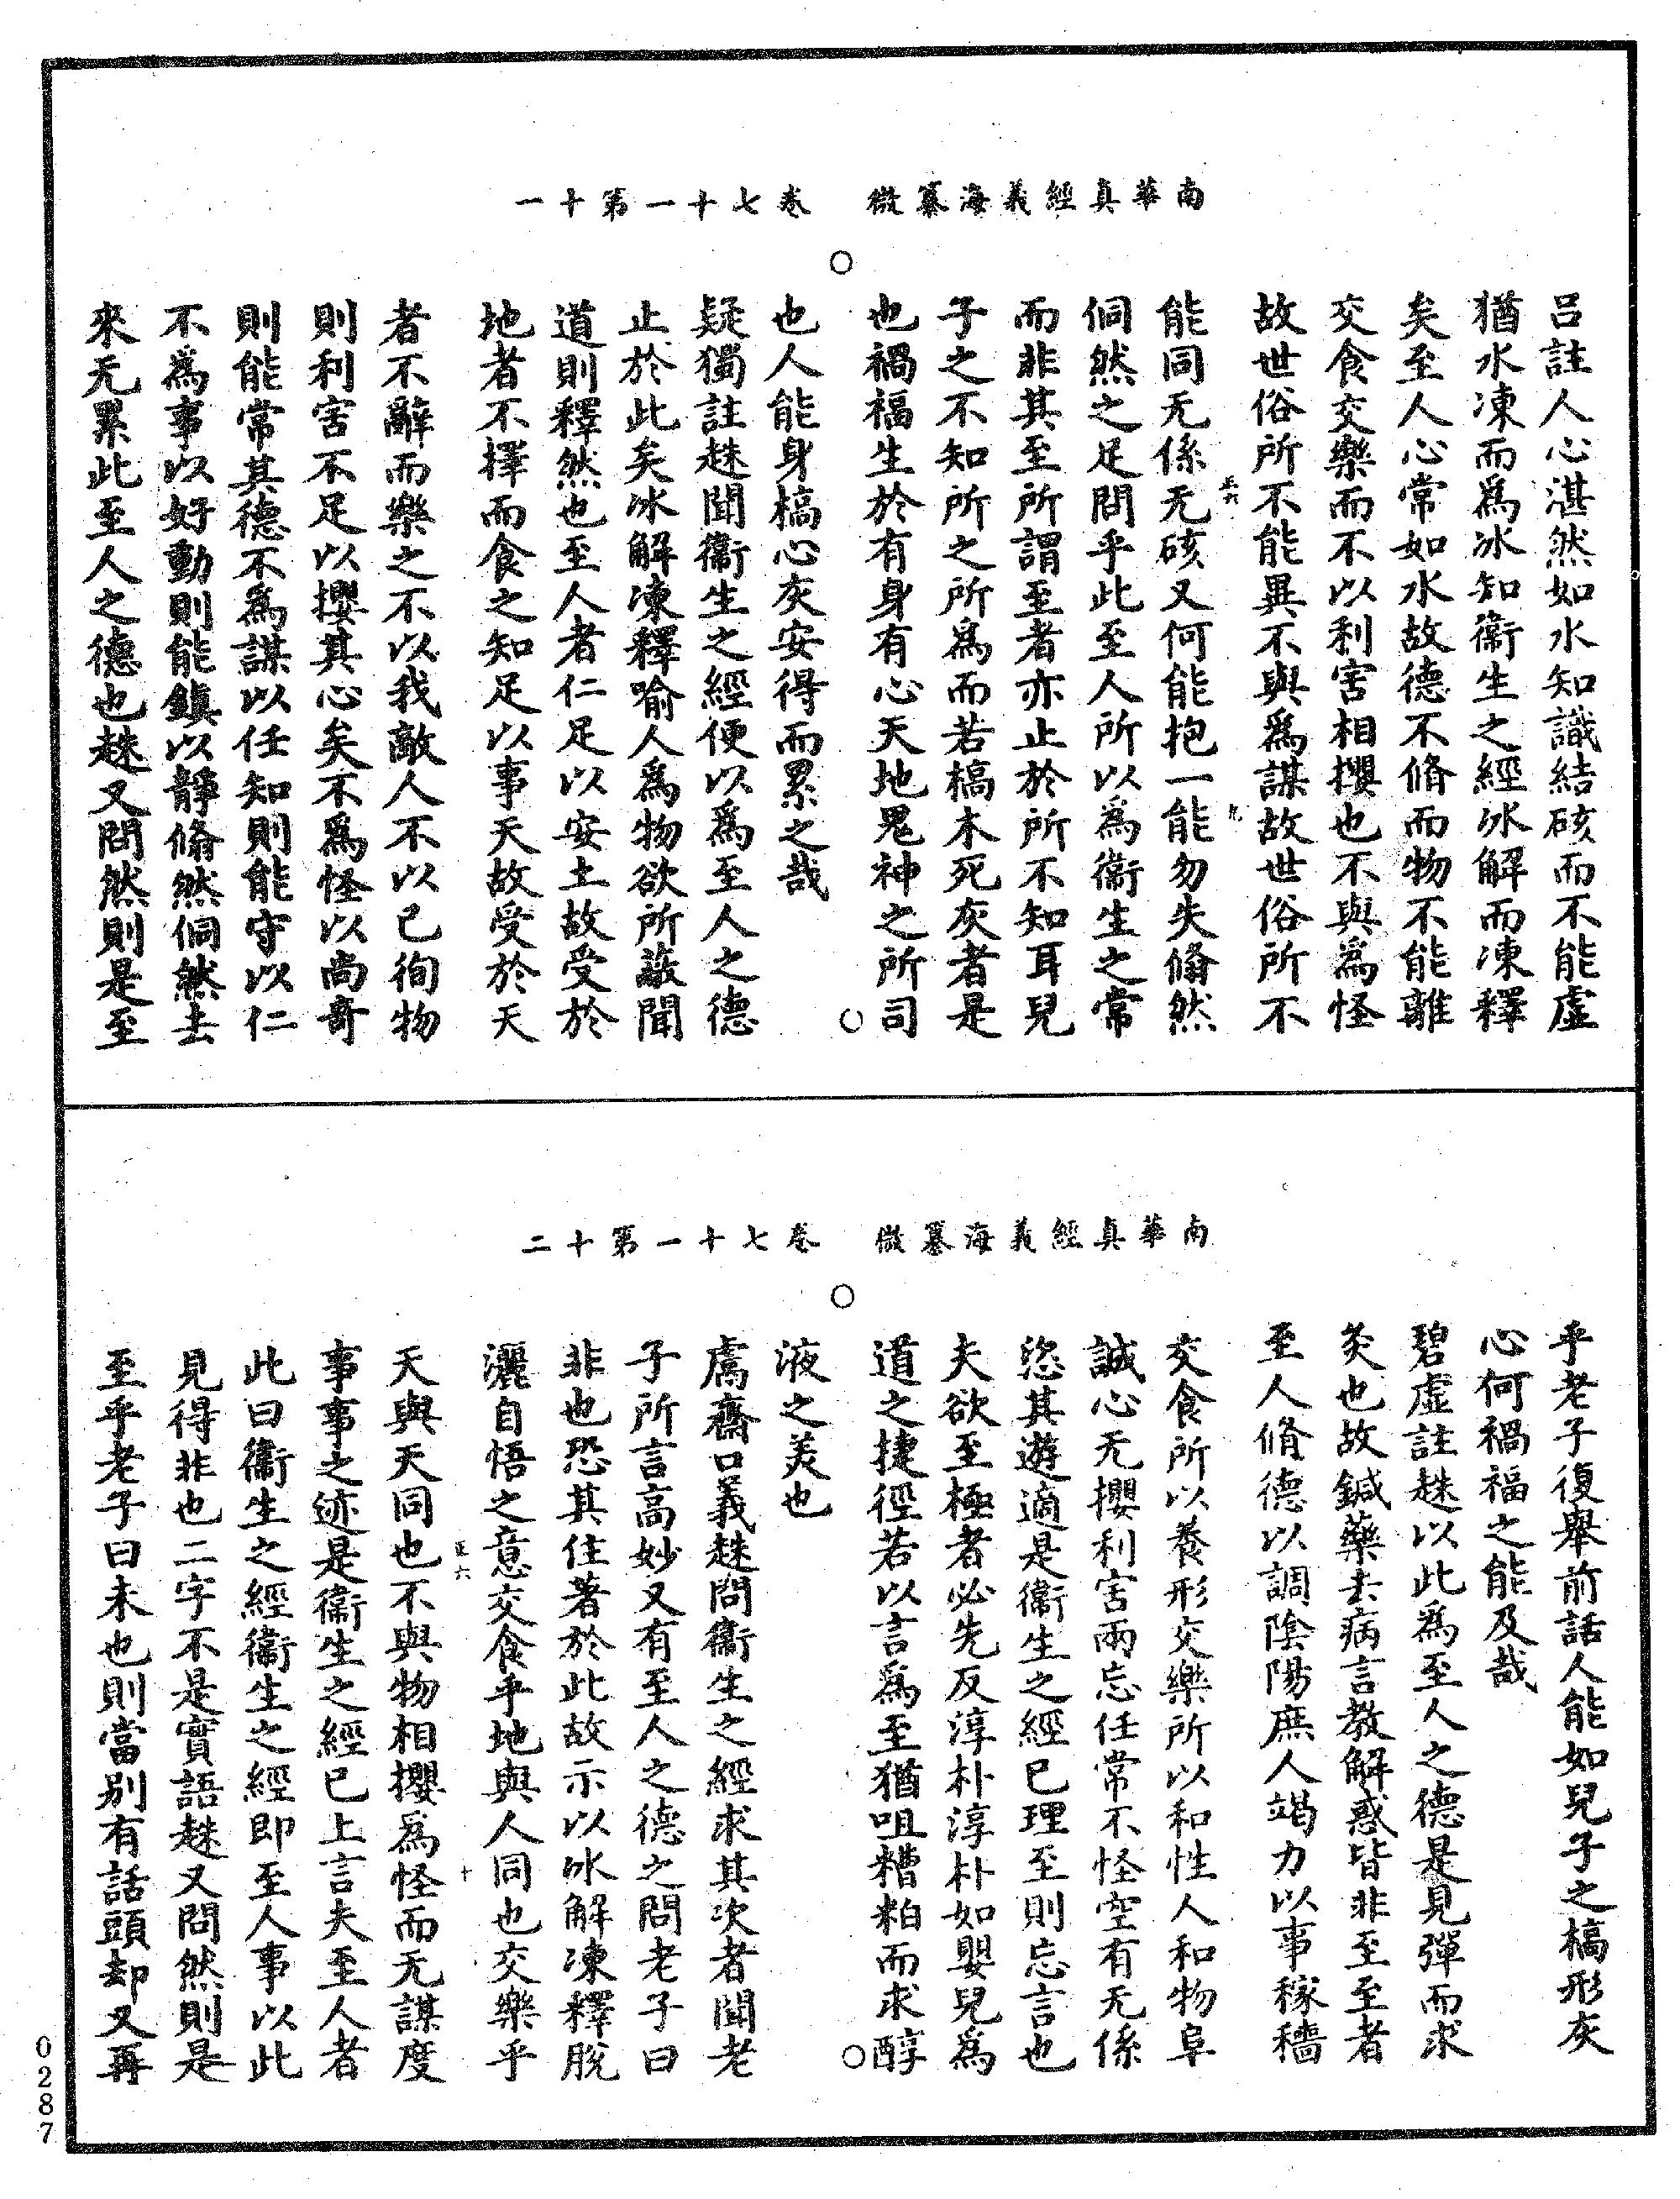 南華真經義海纂微　卷七十一第十一
呂註人心湛然如水知識結硋而不能虛
猶水凍而爲冰知衞生之經冰解而凍釋
矣至人心常如水故德不脩而物不能離
交食交樂而不以利害相攖也不與爲怪
故世俗所不能異不與爲謀故世俗所不
能同无係无硋又何能抱一能勿失翛然
侗然之足問乎此至人所以為衞生之常
而非其至所謂至者亦止於所不知耳兒
子之不知所之所爲而若槁木死灰者是
也禍福生於有身有心天地鬼神之所司
也人能身槁心灰安得而累之哉
疑獨註趎聞衞生之經便以爲至人之德
止於此矣冰解凍釋喻人爲物欲所蔽聞
道則釋然也至人者仁足以安土故受於
地者不擇而食之知足以事天故受於天
者不辭而樂之不以我敵人不以己徇物
則利害不足以攖其心矣不爲怪以尚奇
則能常其德不為謀以任知則能守以仁
不爲事以好動則能鎮以靜翛然侗然去
來无累此至人之德也趎又問然則是至
南華真經義海纂微　卷七十一第十二
乎老子復舉前話人能如兒子之槁形灰
心何禍福之能及哉
碧虛註趎以此爲至人之德是見彈而求
炙也故鍼藥去病言教解惑皆非至至者
至人脩德以調陰陽庶人竭力以事稼穡
交食所以養形交樂所以和性人和物阜
誠心无攖利害兩忘任常不怪空有无係
恣其遊適是衞生之經已理至則忘言也
夫欲至極者必先反淳朴淳朴如嬰兒為
道之捷徑若以言爲至猶咀糟粕而求醇
液之美也
鬳齋口義趎問衞生之經求其次者聞老
子所言高妙又有至人之德之問老子曰
非也恐其住著於此故示以冰解凍釋脫
灑自悟之意交食乎地與人同也交樂乎
天與天同也不與物相攖爲怪而无謀度
事事之迹是衞生之經已上言夫至人者
此曰衞生之經衞生之經即至人事以此
見得非也二字不是實語趎又問然則是
至乎老子曰未也則當別有話頭却又再
0287